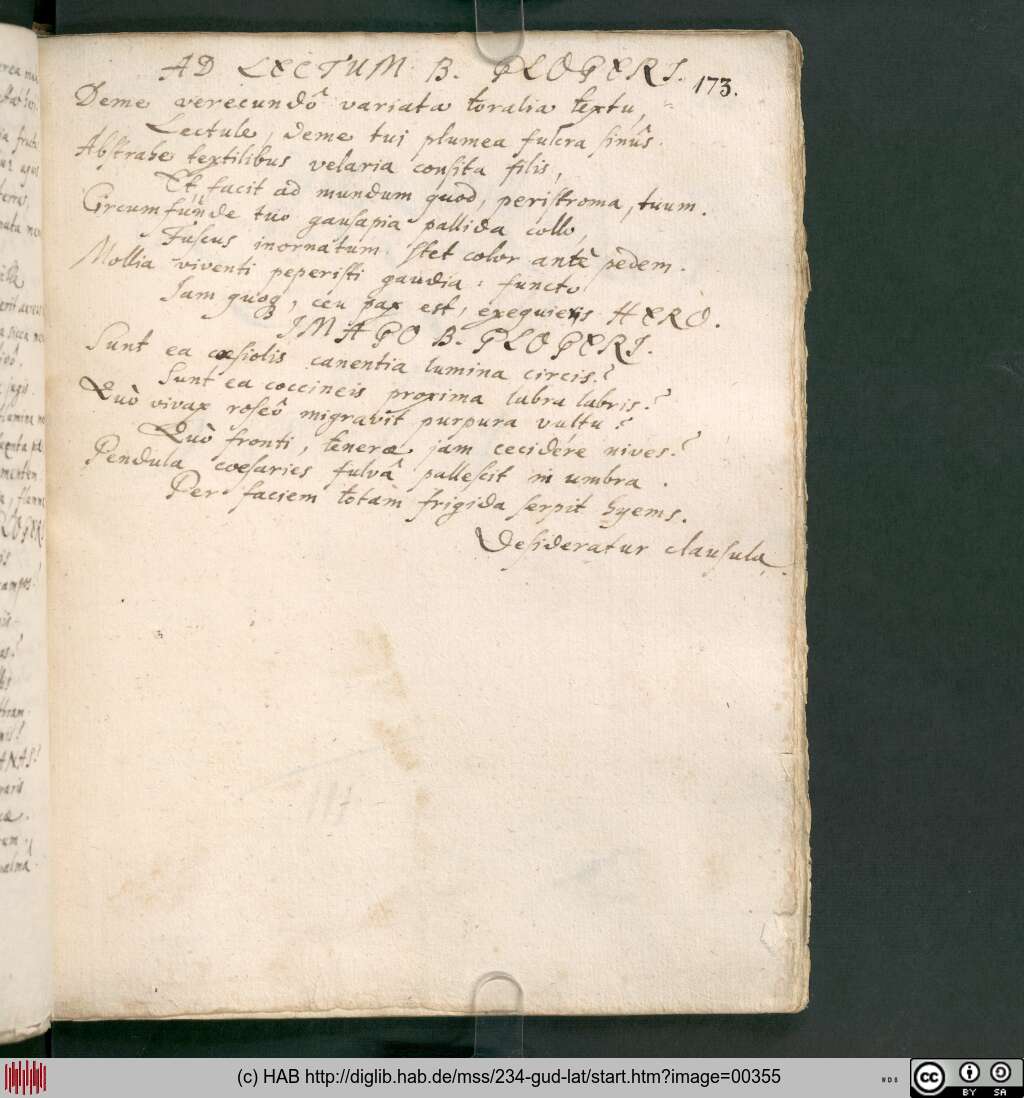 AD LECTUM B. GLOGERI.
173.
Deme verecundô variata toralia textu,
Lectule, deme tui plumea fulcra sinûs.
Abstrahe textilibus velaria consita filis,
Et, facit ad mundum quod, peristroma, tuum.
Circumfunde tuo gausapia pallida collo,
Fuscus inornatum stet color antè pedem.
Mollia viventi peperisti gaudia: functo
Jam quoq, ceu pax est, exequieris HERO.
IMAGO B. GLOGERI.
Sunt ea cæsiolis canentia lumina circis?
Sunt ea coccineis proxima labra labris?
Quò vivax roseô migravit purpura vultu?
Quò fronti, teneræ jam cecidére nives?
Pendula cæsaries fulvâ pallescit in umbra.
Per faciem totam frigida serpit hyems.
Desideratur clausula.
(c) HAB http://diglib.hab.de/mss/234-gud-lat/start.htm?image=00355
cc BY SA